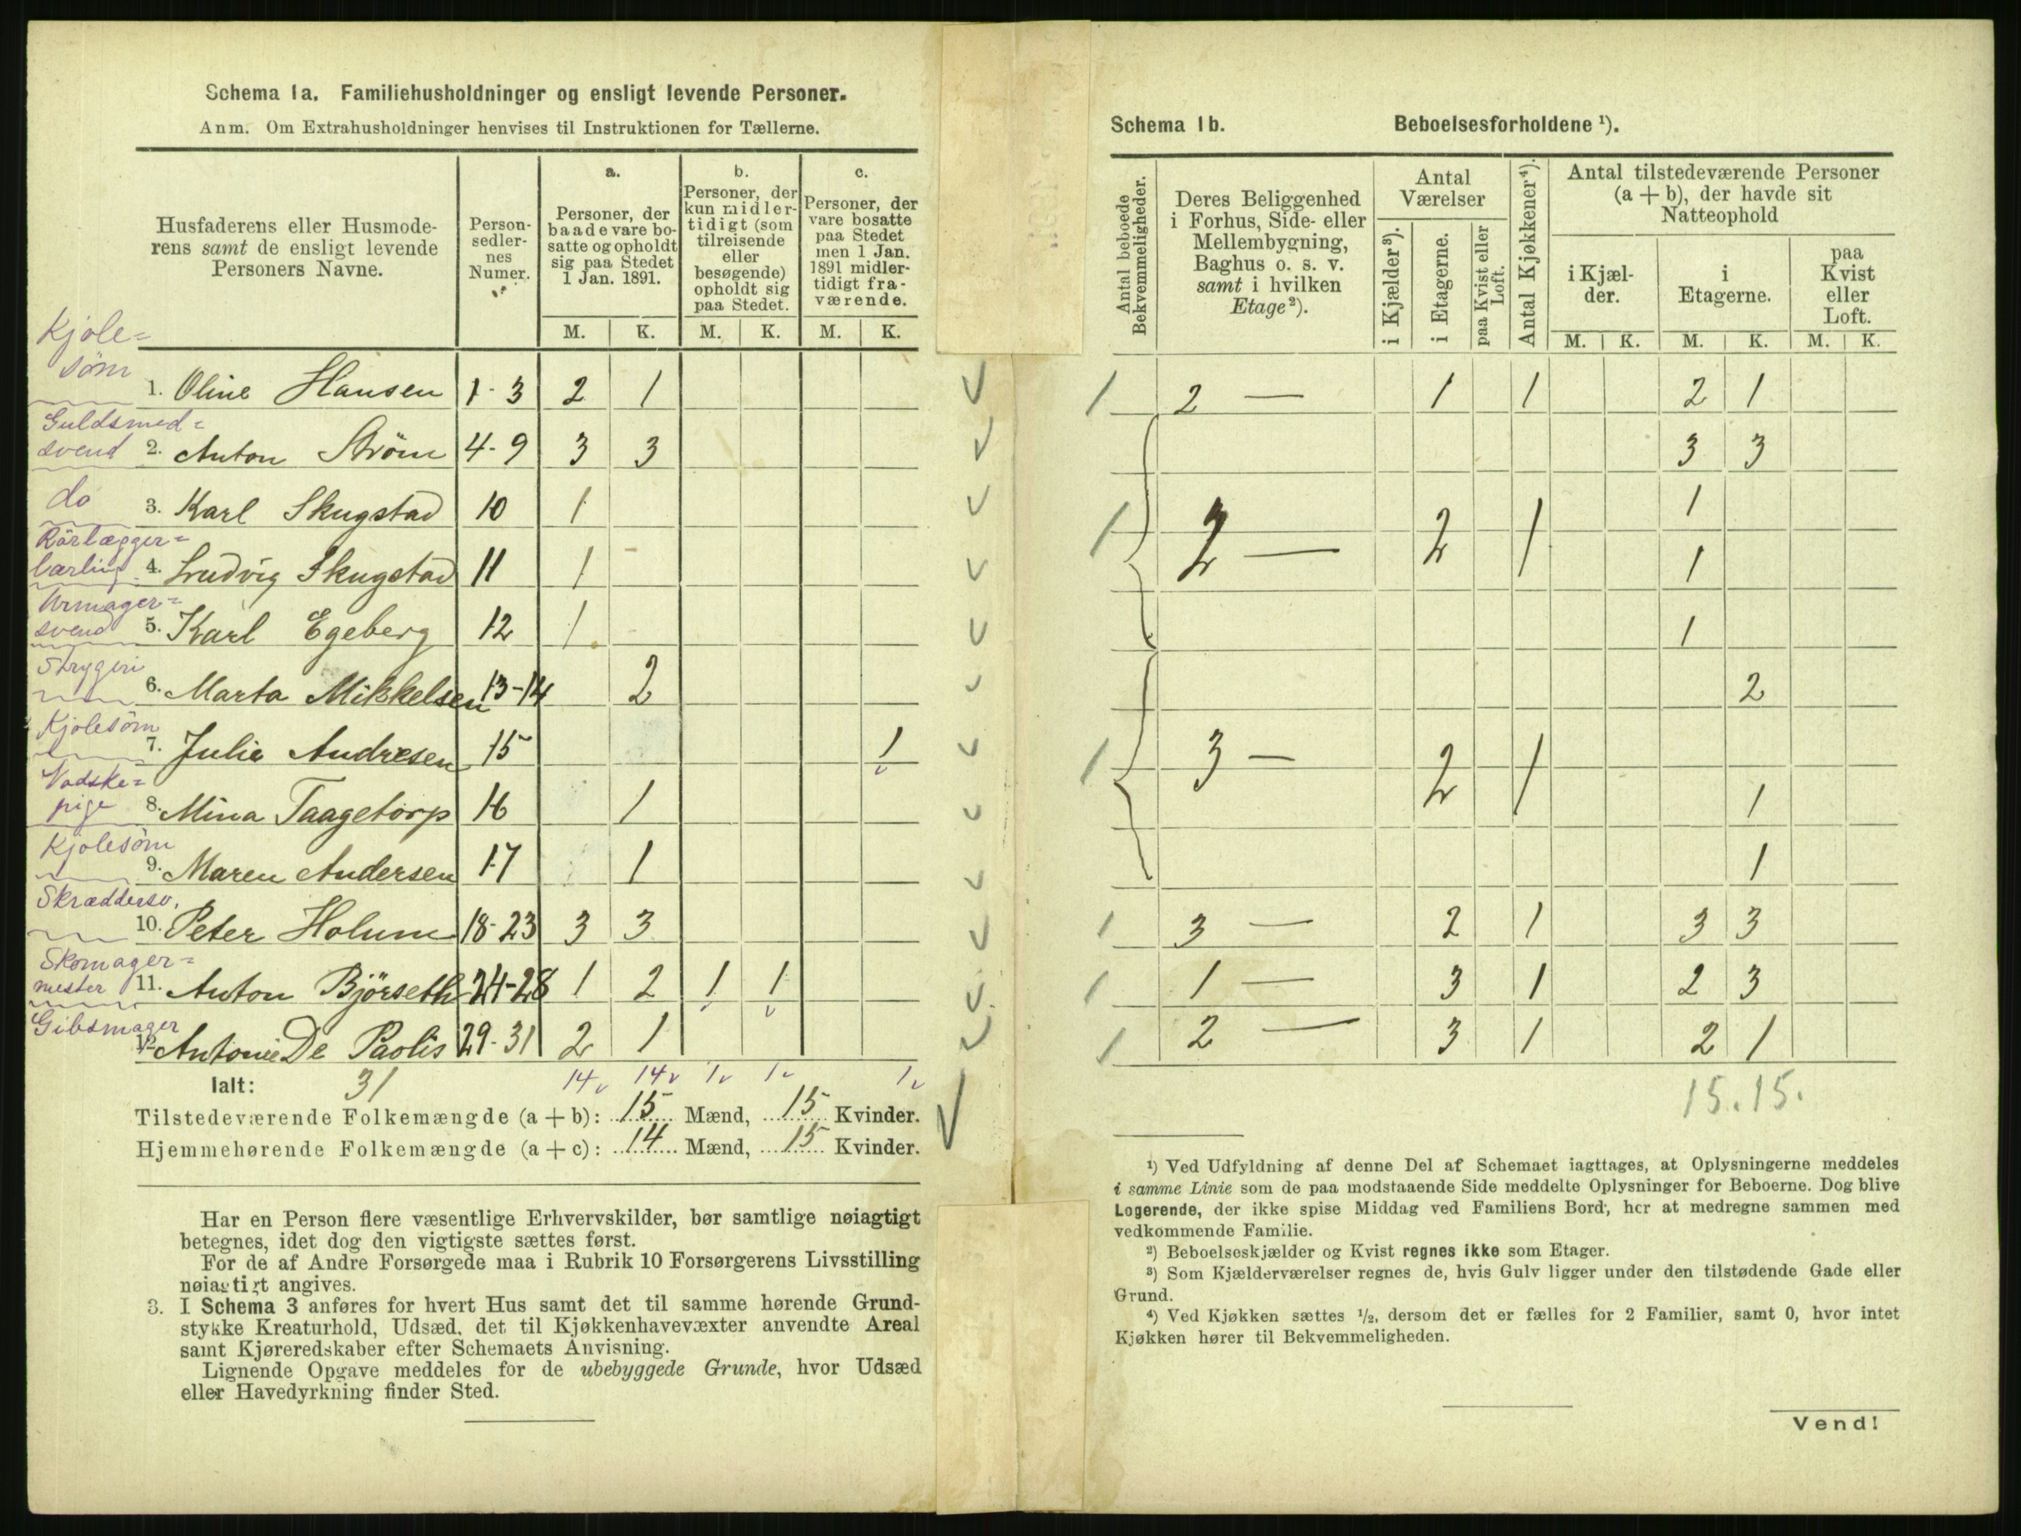 Schema 1a. Familiehusholdninger og ensligt levende Personer.
Anm. Om Extrahusholdninger henvises til Instruktionen for Tællerne.
Husfaderens eller Husmode-
rens samt de ensligt levende
Personers Navne.
Person-
sedler-
nes
Numer.
a.
Personer, der
baade vare bo-
satte og opholdt
sig paa Stedet
1 Jan. 1891.
b.
Personer, der
kun midler-
tidigt (som
tilreisende
eller
besøgende)
opholdt sig
paa Stedet.
c.
Personer, der
vare bosatte
paa Stedet
men 1 Jan.
1891 midler-
tidigt fra-
værende.
M. K. M. K. M. K.
Kjole=
søm
1. Oline Hansen 1-3 2 1
Guldsmed=
svend
2. Anton Strøm 4-9 3 3
do
3. Karl Skugstad 10 1
Rörlægger=
lærling
4. Ludvig Skugstad 11 1
Urmager=
svend
5. Karl Egeberg 12 1
Strygeri
6. Marta Mikkelsen 13-14 2
Kjolesöm
7. Julie Andresen 15 1
Vadske=
pige
8. Mina Taagetorp 16 1
Kjolesöm
9. Maren Andersen 17 1
Skræddersv.
10. Peter Holum 18-23 3 3
Skomager=
mester
11. Anton Björseth 24-28 1 2 1 1
Gibsmager
12 Antonie De Paolis 29-31 2 1
Ialt: 31 14 14 1 1 1
Tilstedeværende Folkemængde (a + b): 15 Mænd, 15 Kvinder.
Hjemmehørende Folkemængde (a + c): 14 Mænd, 15 Kvinder.
Har en Person flere væsentlige Erhvervskilder, bør samtlige nøiagtigt
betegnes, idet dog den vigtigste sættes først.
For de af Andre Forsørgede maa i Rubrik 10 Forsørgerens Livsstilling
nøiagtigt angives.
3. I Schema 3 anføres for hvert Hus samt det til samme hørende Grund-
stykke Kreaturhold, Udsæd, det til Kjøkkenhavevæxter anvendte Areal
samt Kjøreredskaber efter Schemaets Anvisning.
Lignende Opgave meddeles for de ubebyggede Grunde, hvor Udsæd
eller Havedyrkning finder Sted.
Schema 1b. Beboelsesforholdene ¹).
Antal beboede
Bekvemmeligheder.
Deres Beliggenhed
i Forhus, Side- eller
Mellembygning,
Baghus o. s. v.
samt i hvilken
Etage ²).
Antal
Værelser
i Kjælder ³).
i Etagerne.
paa Kvist eller
Loft.
Antal Kjøkkener ⁴).
Antal tilstedeværende Personer
(a + b), der havde sit
Natteophold
i Kjæl-
der.
i
Etagerne.
paa
Kvist
eller
Loft.
M. K. M. K. M. K.
1 2 — 1 1 2 1
3 3
1 2 — 2 1 1
1
1
2
1 3 — 2 1
1
1
1 3 — 2 1 3 3
1 1 — 3 1 2 3
1 2 — 3 1 2 1
15. 15.
¹) Ved Udfyldning af denne Del af Schemaet iagttages, at Oplysningerne meddeles
i samme Linie som de paa modstaaende Side meddelte Oplysninger for Beboerne. Dog blive
Logerende, der ikke spise Middag ved Familiens Bord, her at medregne sammen med
vedkommende Familie.
²) Beboelseskjælder og Kvist regnes ikke som Etager.
³) Som Kjælderværelser regnes de, hvis Gulv ligger under den tilstødende Gade eller
Grund.
⁴) Ved Kjøkken sættes ½, dersom det er fælles for 2 Familier, samt 0, hvor intet
Kjøkken hører til Bekvemmeligheden.
Vend!